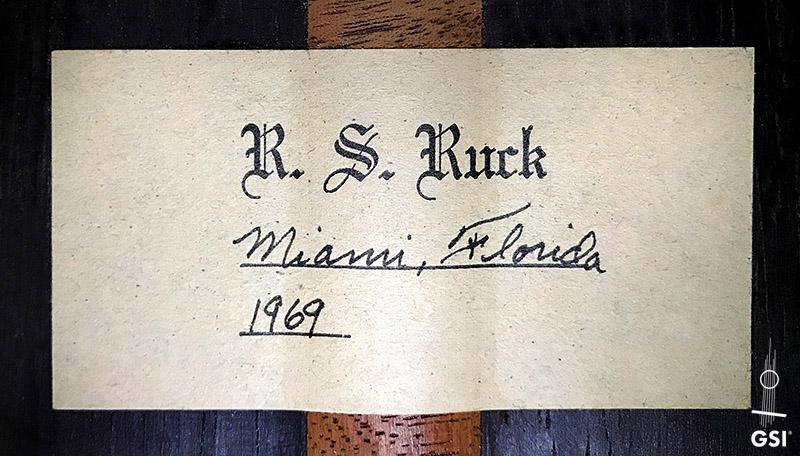 R. S. Ruck
Miami, Florida
1969
GSI®